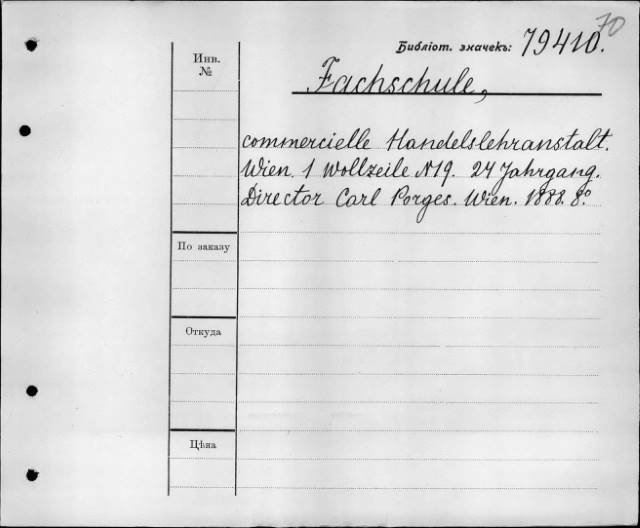 70
Библіот. значекъ: 79410.
Инв.
№
Fachschule,
commercielle Handelslehranstalt.
Wien. 1 Wollzeile N19. 24 Jahrgang.
Director Carl Porges. Wien. 1888. 8º
По заказу
Откуда
Цѣна